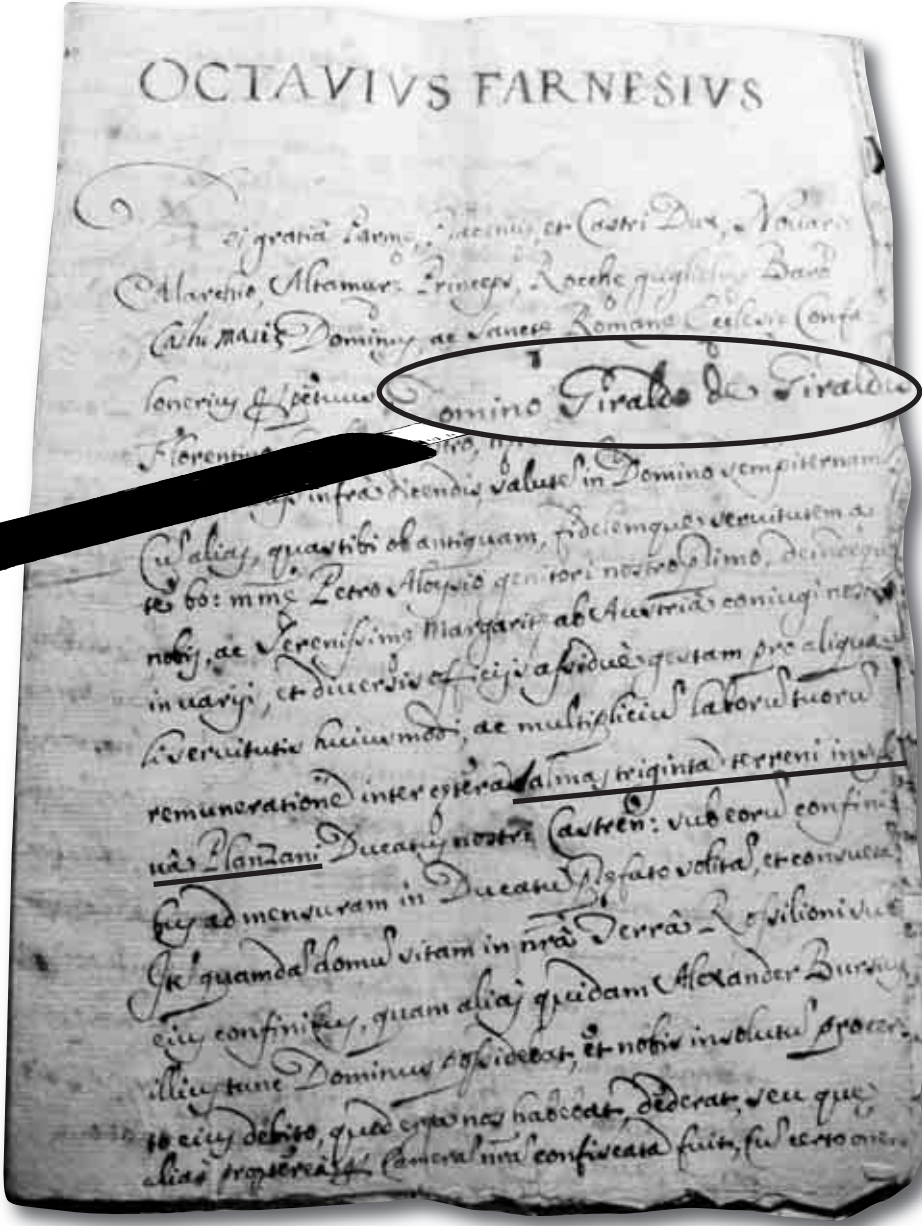 OCTAVIVS FARNESIVS
ej gratiâ Parme, et Castri Dux, Novarie
Marchio, Altamure Princeps, Rocche guglielme Baro
Domin9, ac Sancte Romane Ecclesie Confa
lonerius ppetuus Domino Giraldo de Giraldis
Florentino
infra dicendis, salute in Domino sempiternam
Cu alias, quas tibi ob antiquam, fidelemque servitutem a
te bo: mme Petro Aloysio genitori nostro plimo, deinceps
nobis, ac Serenissime Margarite ab Austria coniugi nostre
in varijs, et diversis officijs assidue gestam pro aliqua
li servitutis huiusmodi, ac multipliciu laboru tuoru
remuneratione inter cetera salmas triginta terreni in
Planzani Ducatus nostri Castren: sub eoru confini
bus ad mensuram in Ducatu pfato solita, et consueta
Ite quamda domu sitam in nrâ Terrâ Rossilioni sub
eius confinibus, quam alias quidam Alexander Bursius
illius tunc Dominus possidebat, et nobis in solutu pro cer
to eius debito, quod erga nos habebat, dederat, seu que
alias propterea Camera nrâ confiscata fuit, cu certo oner